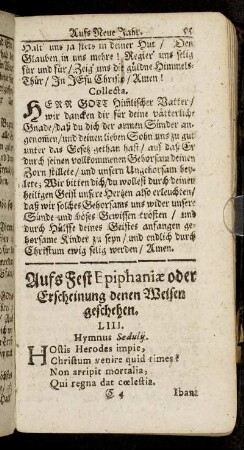 Auffs Neue Jahr. 55
Halt uns ja stets in deiner Hut / Den
Glauben in uns mehre! Regier uns selig
für und für / Zeig uns die güldne Himmels-
Thür / In JEsu Christ / Amen!
Collecta.
HERR GOTT Himlischer Vatter /
wir dancken dir für deine vätterliche
Gnade / daß du dich der armen Sünder an-
genomen / und deinen lieben Sohn uns zu gut
unter das Gesetz gethan hast / auf daß Er
durch seinen vollkommenen Gehorsam deinen
Zorn stillete / und unsern Ungehorsam bey-
legte; Wir bitten dich / du wollest durch deinen
heiligen Geist unsere Hertzen also erleuchten /
daß wir solches Gehorsams uns wider unsere
Sünde und böses Gewissen trösten / und
durch Hülffe deines Geistes anfangen ge-
horsame Kinder zu seyn / und endlich durch
Christum ewig selig werden / Amen.
Auffs Fest Epiphaniæ oder
Erscheinung denen Weisen
geschehen.
LIII.
Hymnus Sedulij.
HOstis Herodes impie,
Christum venire quid times?
Non arripit mortalia,
Qui regna dat cœlestia.
C 4 Ibant